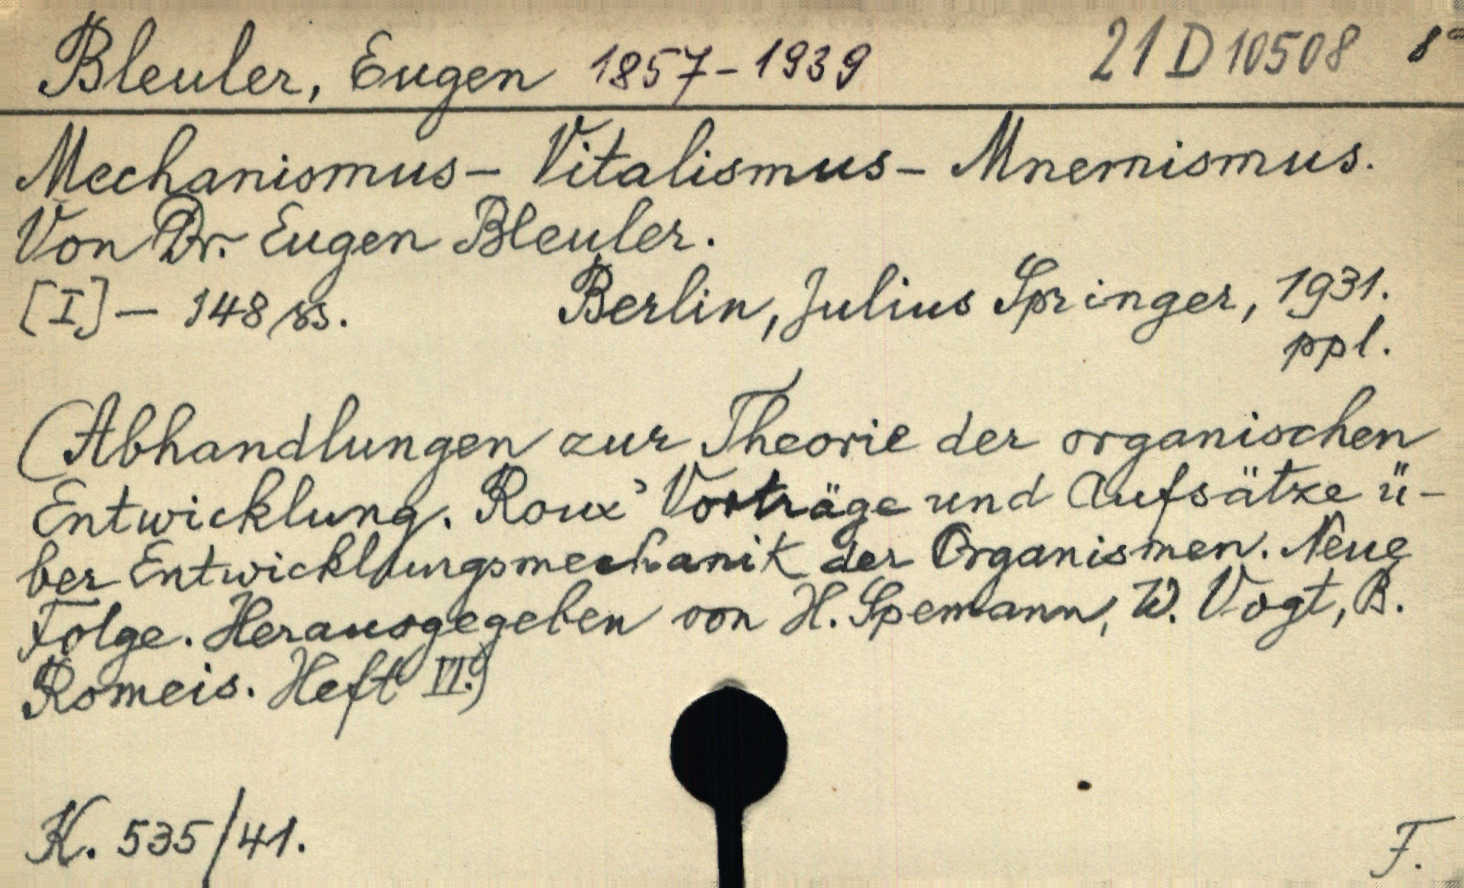 Bleuler, Eugen 1857-1939 21 D 10508 8°
Mechanismus - Vitalismus - Mnemismus.
Von Dr. Eugen Bleuler.
[I] - 148 ss. Berlin, Julius Springer, 1931.
ppl.
(Abhandlungen zur Theorie der organischen
Entwicklung. Roux' Vorträge und Aufsätze ü-
ber Entwicklungsmechanik der Organismen. Neue
Folge. Herausgegeben von H. Spemann, W. Vogt, B.
Romeis. Heft VI.)
K. 535/41. F.